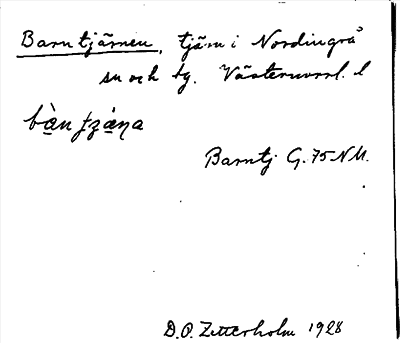 Barntjärnen, tjärn i Nordingrå
sn och tg. Västernorrl. l
bàn tzàna
Barntj G. 75 NV.
D.O. Zetterholm 1928